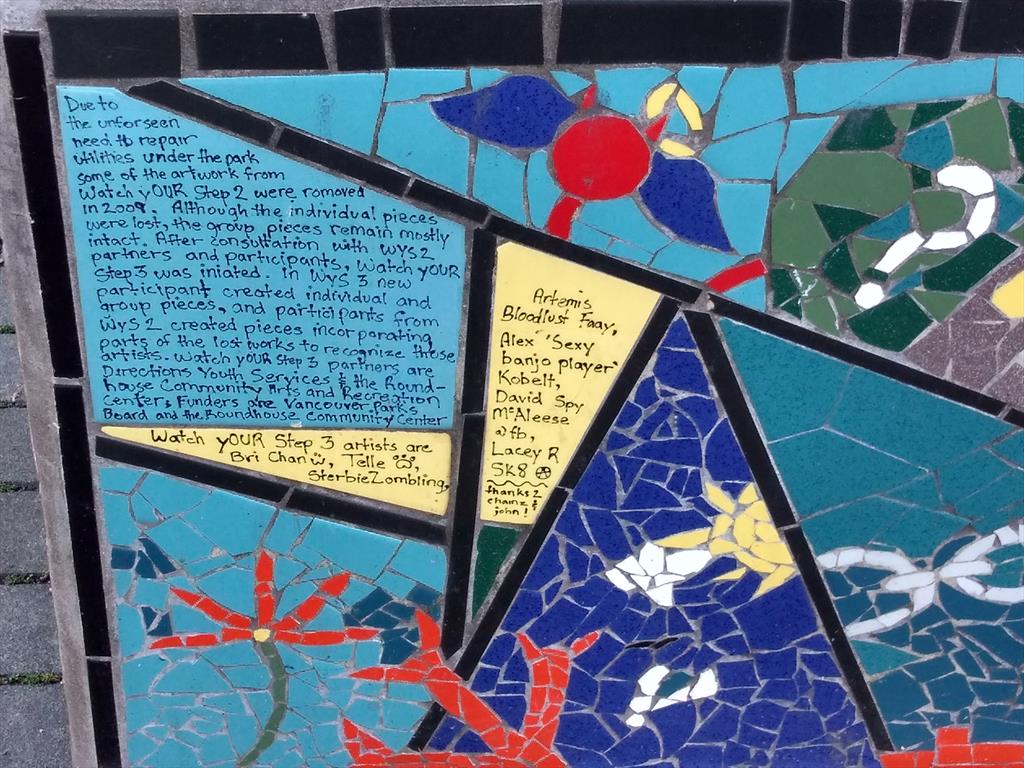 Due to
the unforseen
need to repair
utilities under the park
some of the artwork from
Watch yOUR Step 2 were romoved
in 2009. Although the individual pieces
were lost, the group pieces remain mostly
intact. After consultation with WYS2
partners and participants, Watch yOUR
Step 3 was iniated. In WYS 3 new
participant created individual and
group pieces, and participants from
WYS 2 created pieces incorporating
parts of the lost works to recognize those
artists. Watch yOUR Step 3 partners are
Directions Youth Services & the Round-
house Community Arts and Recreation
Center. Funders are Vancouver Parks
Board and the Roundhouse Community Center
Watch yOUR Step 3 artists are
Bri Chan, Telle,
SterbieZombling,
Artemis
Bloodlust Faay,
Alex "Sexy
banjo player"
Kobelt,
David Spy
McAleese
@fb,
Lacey R
SK8
thanks 2
chainz &
john!